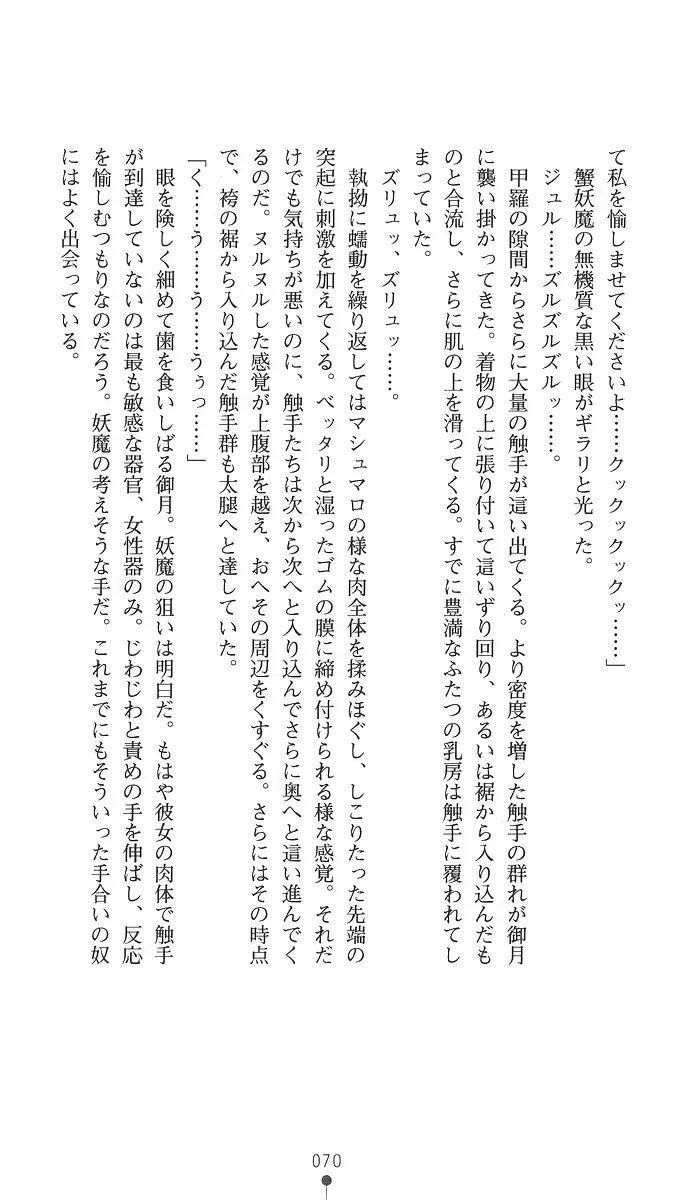 て私を愉しませてくださいよ……クックックックッ……」
　蟹妖魔の無機質な黒い眼がギラリと光った。
　ジュル……ズルズルズルッ……。
　甲羅の隙間からさらに大量の触手が這い出てくる。より密度を増した触手の群れが御月
に襲い掛かってきた。着物の上に張り付いて這いずり回り、あるいは裾から入り込んだも
のと合流し、さらに肌の上を滑ってくる。すでに豊満なふたつの乳房は触手に覆われてし
まっていた。
　ズリュッ、ズリュッ……。
　執拗に蠕動を繰り返してはマシュマロの様な肉全体を揉みほぐし、しこりたった先端の
突起に刺激を加えてくる。ベッタリと湿ったゴムの膜に締め付けられる様な感覚。それだ
けでも気持ちが悪いのに、触手たちは次から次へと入り込んでさらに奥へと這い進んでく
るのだ。ヌルヌルした感覚が上腹部を越え、おへその周辺をくすぐる。さらにはその時点
で、袴の裾から入り込んだ触手群も太腿へと達していた。
「く……う……う……うぅっ……」
　眼を険しく細めて歯を食いしばる御月。妖魔の狙いは明白だ。もはや彼女の肉体で触手
が到達していないのは最も敏感な器官、女性器のみ。じわじわと責めの手を伸ばし、反応
を愉しむつもりなのだろう。妖魔の考えそうな手だ。これまでにもそういった手合いの奴
にはよく出会っている。
070